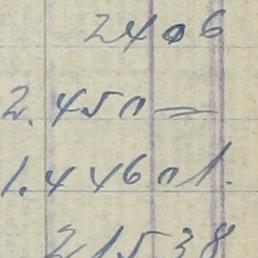 2406
2.45 n —
1.446 n 1.
21538